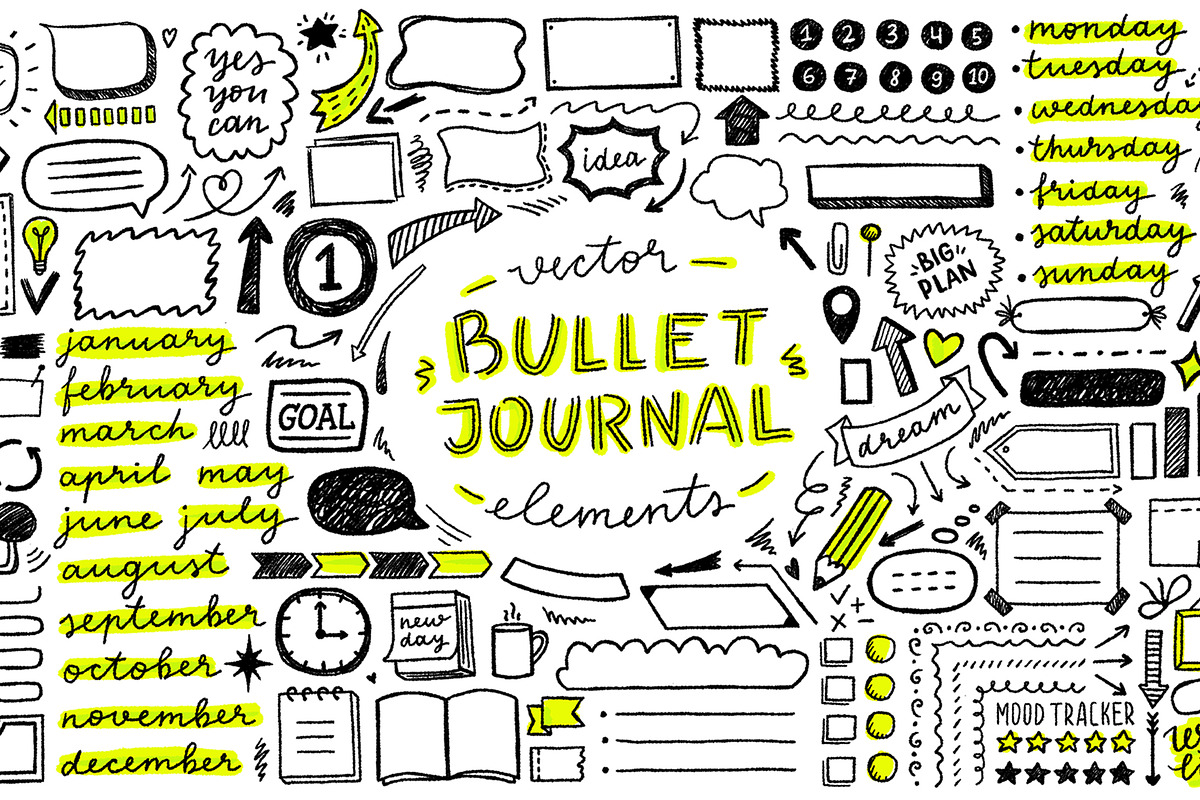 yes
you
can
1 2 3 4 5
6 7 8 9 10
monday
tuesday
wednesda
thursday
friday
saturday
sunday
idea
1
vector
BULLET
JOURNAL
elements
BIG
PLAN
GOAL
dream
january
february
march
april may
june july
august
september
october
november
december
new
day
MOOD TRACKER